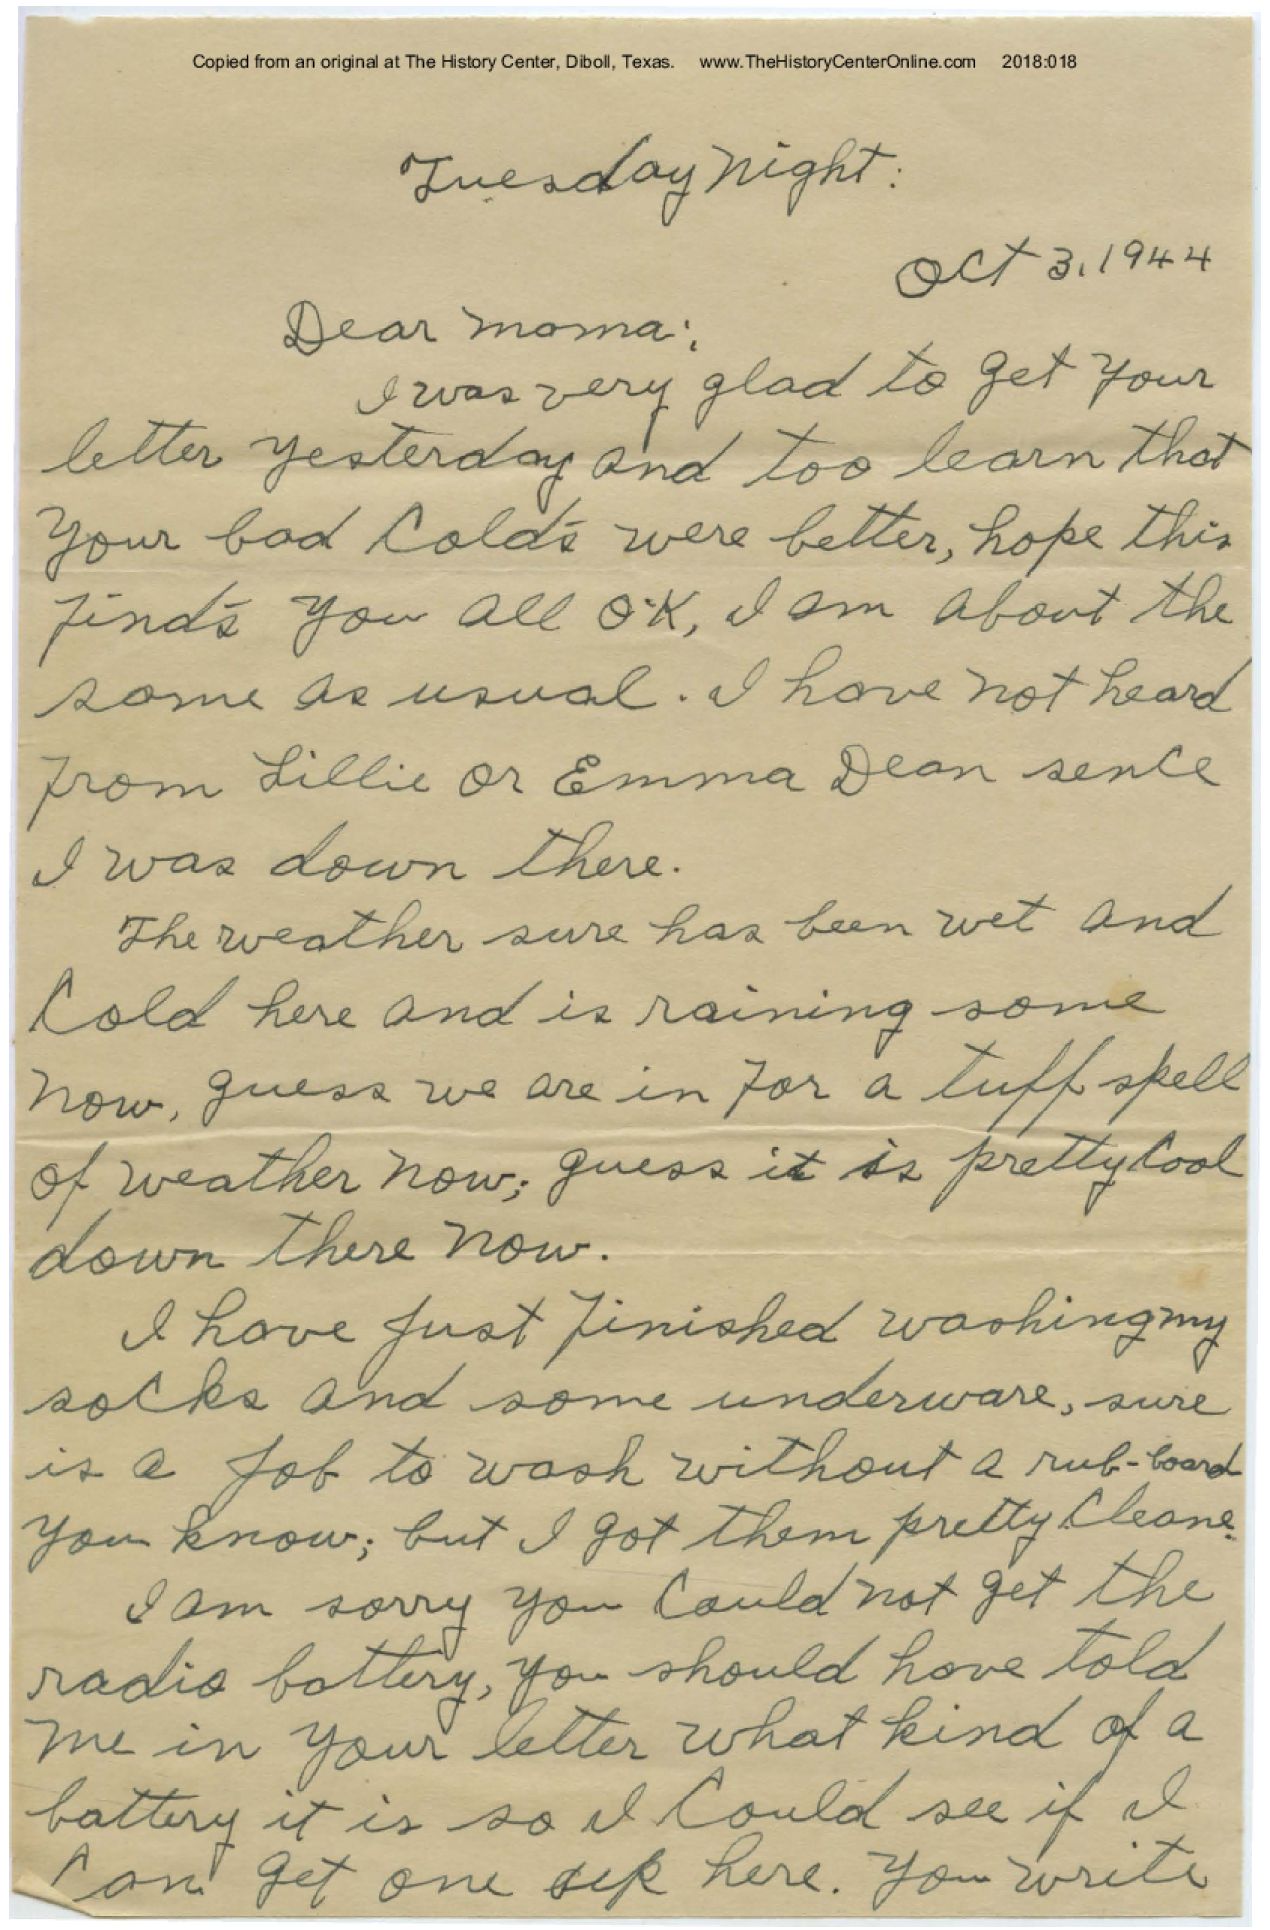 Copied from an original at The History Center, Diboll, Texas. www.TheHistoryCenterOnline.com 2018:018
Tuesday Night:
Oct 3, 1944
Dear Moma:
I was very glad to get your
letter yesterday and too learn that
your bad Cold's were better, hope this
find's you all O.K, I am about the
same as usual. I have not heard
from Lillie or Emma Dean sence
I was down there.
The weather sure has been wet and
Cold here and is raining some
now, guess we are in for a tuff spell
of weather now; guess it is pretty Cool
down there now.
I have just finished washing my
socks and some underware, sure
is a job to wash without a rub-board
you know; but I got them pretty Cleane.
I am sorry you Could not get the
radio battery, you should have told
me in your letter what kind of a
battery it is so I Could see if I
Can get one up here. You write